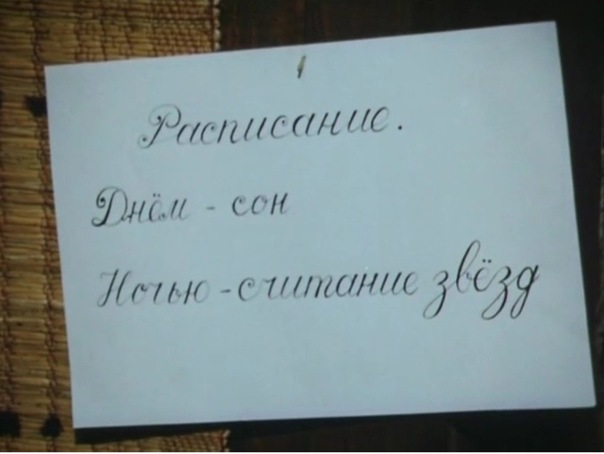 Расписание.
Днём - сон
Ночью - считание звёзд